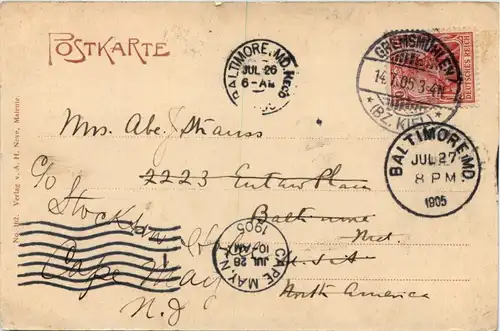 POSTKARTE
BALTIMORE, MD.
JUL 26
6-AM
GREMSMÜHLEN
14.7.05. 3-4N
*(BZ. KIEL)*
DEUTSCHES REICH
BALTIMORE, MD.
JUL 27
8 PM
1905
Mrs. Abe. Strauss
2223 Eutaw Place
Baltimore
Md.
U.S.A.
North America
C/o Stockton
Cape May
N.J
CAPE MAY, N.J.
JUL 28
10-AM
1905
No. 102. Verlag v. A. H. Nove, Malente.